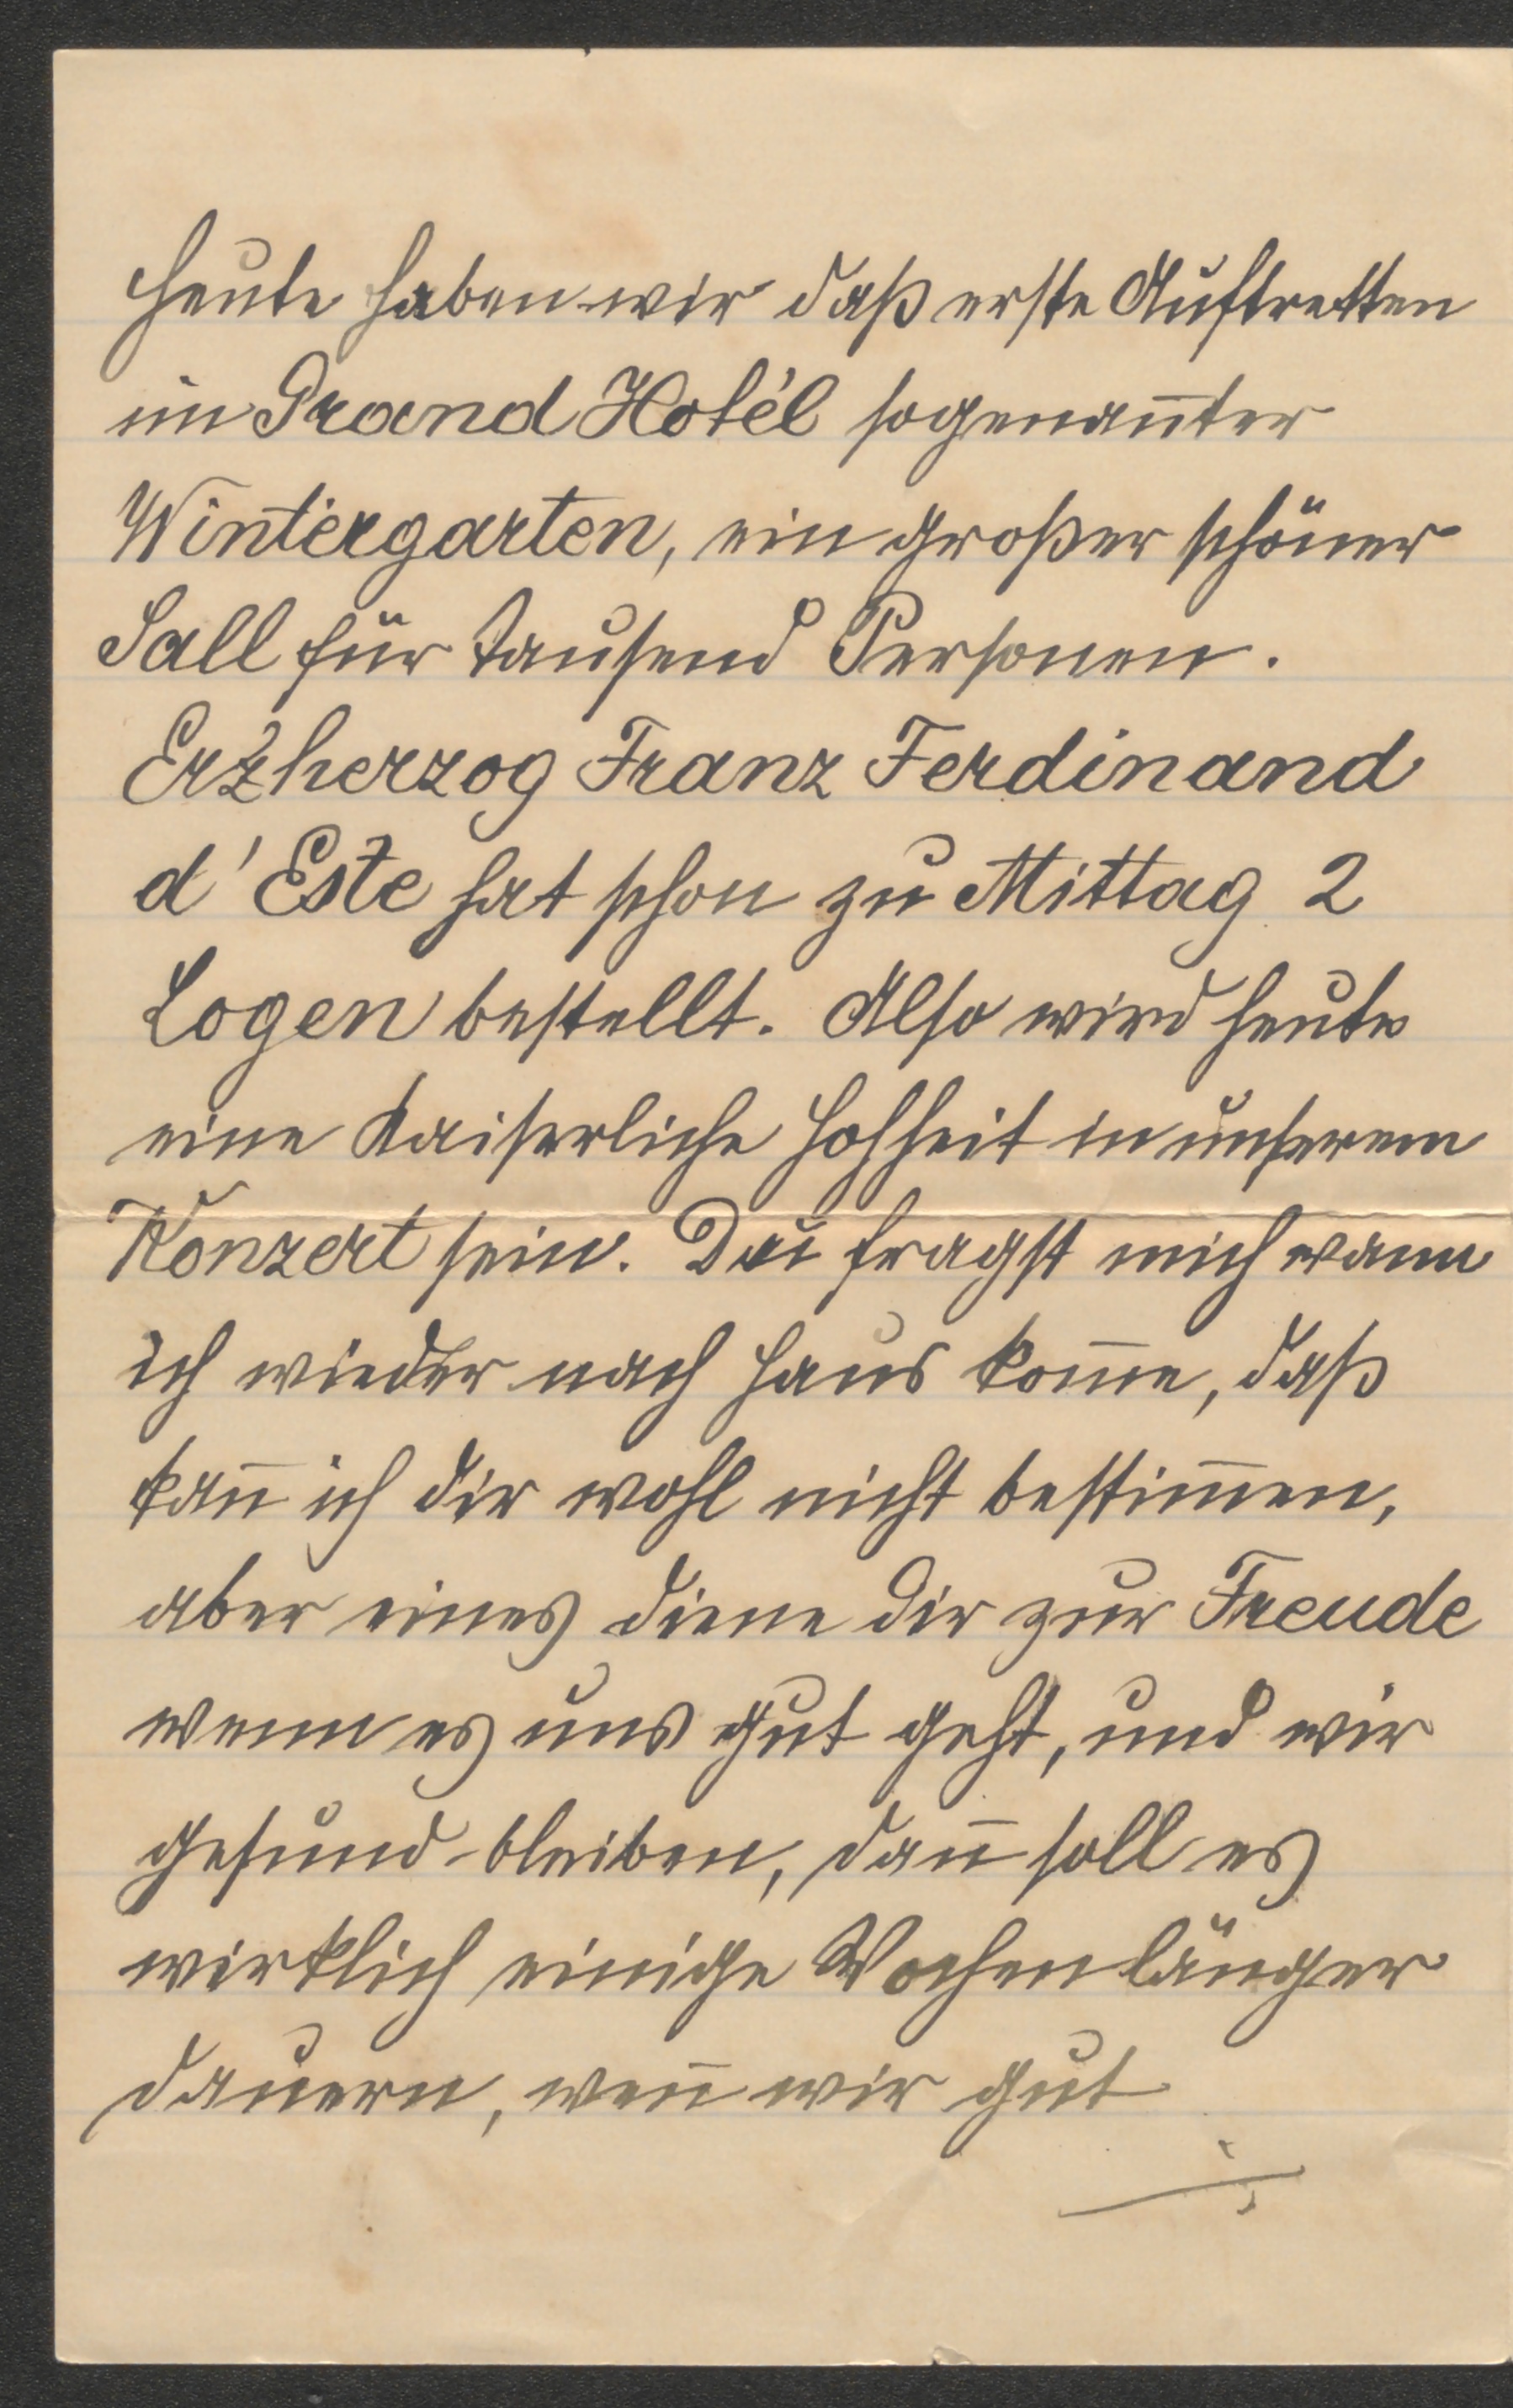 Heute haben wir daß erste Auftretten
im Grand Hotél sogenan̄ter
Wintergarten, ein großer schöner
Sall für tausend Personen.
Erzherzog Franz Ferdinand
d'Este hat schon zu Mittag 2
Logen bestellt. Also wird heute
eine Kaiserliche Hohheit in unserem
Konzert sein. Du fragst mich wann
ich wieder nach Haus kom̄e, daß
kan̄ ich dir wohl nicht bestim̄en,
aber eines diene dir zur Freude
wenn es uns gut geht, und wir
gesund bleiben, dan̄ soll es
wirklich einige Wochen länger
dauern, wen̄ wir gut